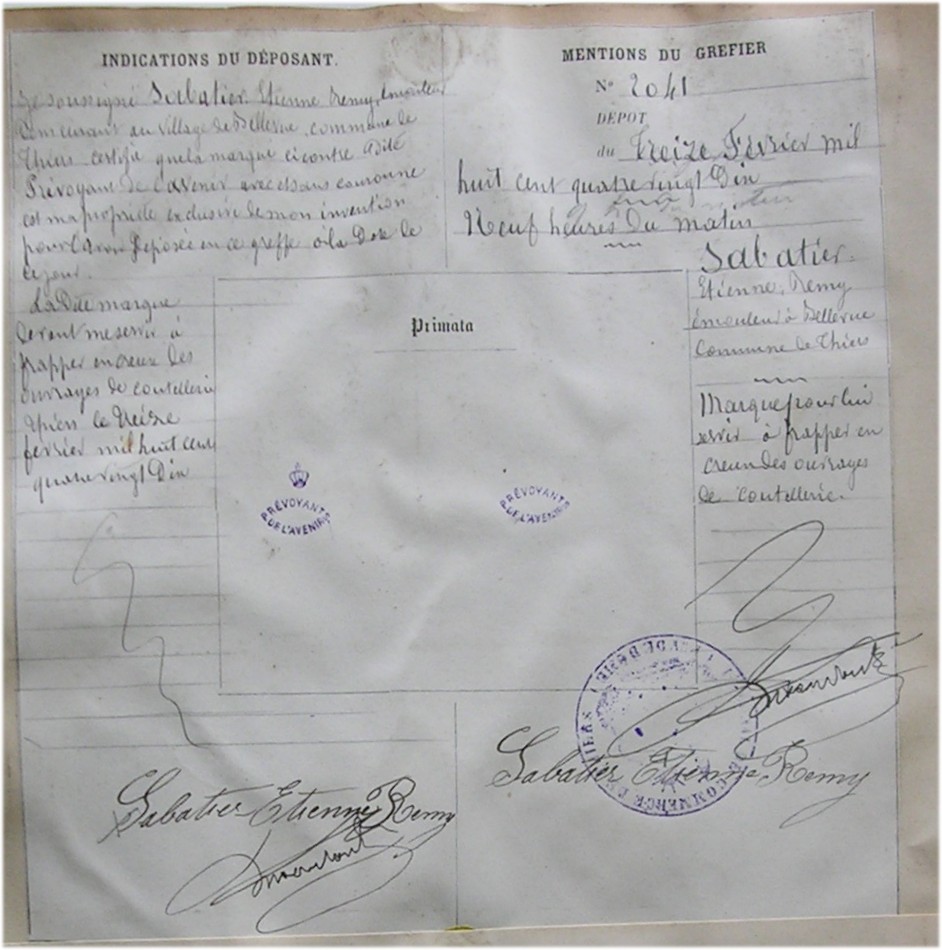 INDICATIONS DU DÉPOSANT.
Je soussigné Sabatier Etienne Remy, émouleur
Demeurant au village de Bellevue commune de
Thiers certifie que la marque ci contre dite
Prévoyant de l'avenir avec et sans couronne
est ma propriété exclusive de mon invention
pour l'avoir Déposée en ce greffe à la Date de
ce jour.
La Dite marque
devant me servir à
frapper en creux des
ouvrages de coutellerie
Thiers le Treize
fevrier mil huit cent
quatre vingt Dix
MENTIONS DU GREFIER
N° 2041
DÉPOT
du Treize Février mil
huit cent quatre vingt Dix
Neuf heures Du matin
Sabatier.
Etienne, Remy
émouleur à Bellevue
Commune de Thiers
Marque pour lui
servir à frapper en
creux des ouvrages
de coutellerie.
Primata
PRÉVOYANTS
DE L'AVENIR
PRÉVOYANTS
DE L'AVENIR
COMMERCE
Sabatier Etienne Remy
Sabatier Etienne Remy